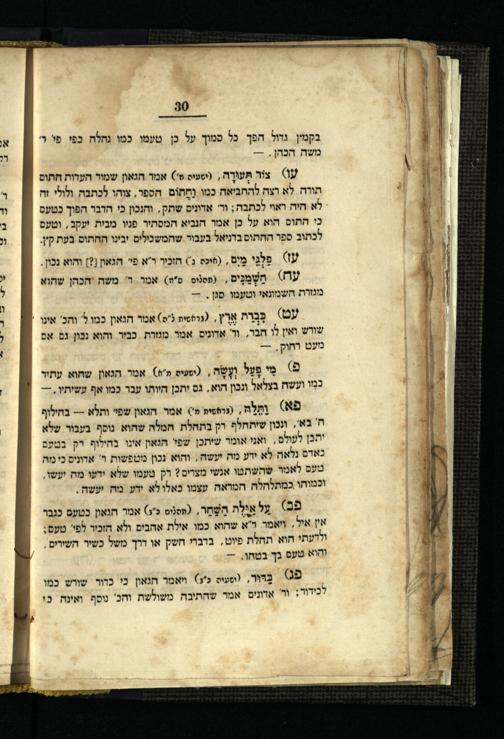 30
בקמץ גדול הפך כל סמוך על כן טעמו כמו נחלה כפי פי' ר'
משה הכהן. —
עו) צוֹר תְּעוּדָה, (ישעיה ח') אמר הגאון שמור העדות חתום
תורה לא רצה להחביאה כמו וַחֲתוֹם הספר, צוהו לכתבה ולולי זה
לא היה ראוי לכתבה; ור' אדונים שתק, והנכון כי הדבר הפוך כטעם
כי חתום הוא על כן אמר הנביא המסתיר פניו מבית יעקב, וטעם
לכתוב ספר החתום בדניאל בעבור שהמשכילים יבינו החתום בעת קץ.
עז) פַּלְגֵי מַיִם, (איכה ג') הזכיר ר"א פי' הגאון [?] והוא נכון.
עח) חַשְׁמַנִּים, (תהלים ס"ח) אמר ר' משה הכהן שהוא
מגזרת חשמונאי וטעמו סגן. —
עט) כִּבְרַת אֶרֶץ, (בראשית ל"ה) אמר הגאון כמו ל' והכ' אינו
שורש ואין לו חבר, ור' אדונים אמר מגזרת כביר והוא נכון גם אם
מעט רחוק. —
פ) מִי פָעַל וְעָשָׂה, (ישעיה מ"א) אמר הגאון שהוא עתיד
כמו ועשה בצלאל ונכון הוא, גם יתכן היותו עבר כמו אף עשיתיו. —
פא) וַתֵּלַהּ, (בראשית מ"ז) אמר הגאון שפי' ותלא — בחילוף
ה' בא', ונכון שיתחלף רק בתחלת המלה שהוא נוסף בעבור שלא
יתכן לעולם, ואני אומר שיתכן שפי' הגאון אינו בחילוף רק בטעם
כאדם נלאה לא ידע מה יעשה, והוא נכון מטפשות ר' אדונים כי מה
טעם לאמר שהשתטו אנשי מצרים? רק טעמו שלא ידעו מה יעשו,
וכמוהו כמתלהלה המראה עצמו כאלו לא ידע מה יעשה.
פב) עַל אַיֶּלֶת הַשַּׁחַר, (תהלים כ"ב) אמר הגאון כטעם כגבר
אין איל, ויאמר ר"א שהוא כמו אילת אהבים ולא הזכיר לפי' טעם;
ולדעתי הוא תחלת פיוט, בדברי חשק או דרך משל כשיר השירים,
והוא טעם בך בטחו. —
פג) כַּדּוּר, (ישעיה כ"ב) ויאמר הגאון כי כדור שורש כמו
לכידור; ור' אדונים אמר שהתיבה משולשת והכ' נוסף ואינה כי